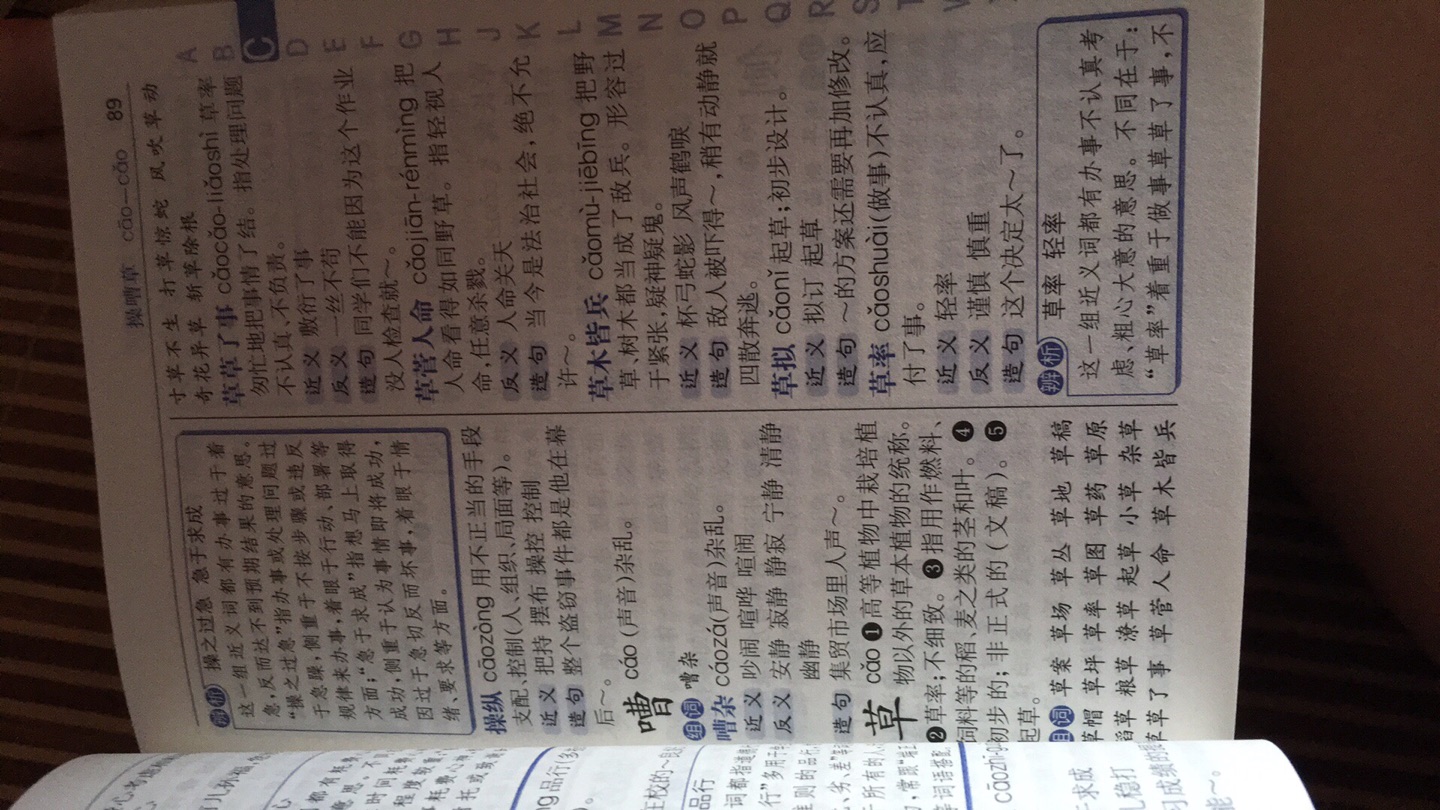 操嘈草 cāo—cǎo 89
辨析 操之过急 急于求成
这一组近义词都有办事过于着
急,反而达不到预期结果的意思。
“操之过急”指办事或处理问题过
于急躁,侧重于不按步骤或违反
规律来办事,着眼于行动、部署等
方面;“急于求成”指想马上取得
成功,侧重于认为事情即将成功,
因过于急切反而坏事,着眼于情
绪、要求等方面。
操纵 cāozòng 用不正当的手段
支配、控制(人、组织、局面等)。
近义 把持 摆布 操控 控制
造句 整个盗窃事件都是他在幕
后～。
嘈 cáo (声音)杂乱。
组词 嘈杂
嘈杂 cáozá(声音)杂乱。
近义 吵闹 喧哗 喧闹
反义 安静 寂静 静寂 宁静 清静
幽静
造句 集贸市场里人声～。
草 cǎo ❶高等植物中栽培植
物以外的草本植物的统称。
❷草率;不细致。❸指用作燃料、
饲料等的稻、麦之类的茎和叶。❹
初步的;非正式的(文稿)。❺
起草。
组词 草案 草场 草丛 草地 草稿
草帽 草坪 草率 草图 草药 草原
稻草 粮草 潦草 起草 小草 杂草
草草了事 草菅人命 草木皆兵
寸草不生 打草惊蛇 风吹草动
奇花异草 斩草除根
草草了事 cǎocǎo-liǎoshì 草率
匆忙地把事情了结。指处理问题
不认真、不负责。
近义 敷衍了事
反义 一丝不苟
造句 同学们不能因为这个作业
没人检查就～。
草菅人命 cǎojiān-rénmìng 把
人命看得如同野草。指轻视人
命,任意杀戮。
反义 人命关天
造句 当今是法治社会,绝不允
许～。
草木皆兵 cǎomù-jiēbīng 把野
草、树木都当成了敌兵。形容过
于紧张,疑神疑鬼。
近义 杯弓蛇影 风声鹤唳
造句 敌人被吓得～,稍有动静就
四散奔逃。
草拟 cǎonǐ 起草;初步设计。
近义 拟订 起草
造句 ～的方案还需要再加修改。
草率 cǎoshuài(做事)不认真,应
付了事。
近义 轻率
反义 谨慎 慎重
造句 这个决定太～了。
辨析 草率 轻率
这一组近义词都有办事不认真考
虑、粗心大意的意思。不同在于:
“草率”着重于做事草草了事,不
A
B
C
D
E
F
G
H
J
K
L
M
N
O
P
Q
R
S
T